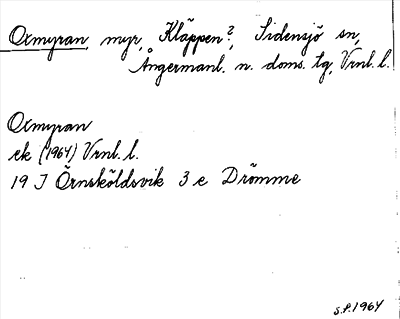 Oxmyran myr, Kläppen?, Sidensjö sn,
Ångermanl. n. doms. tg, Vrnl. l.
Oxmyran
ek (1964) Vrnl. l.
19 J Örnsköldsvik 3 e Drömme
S.P. 1964